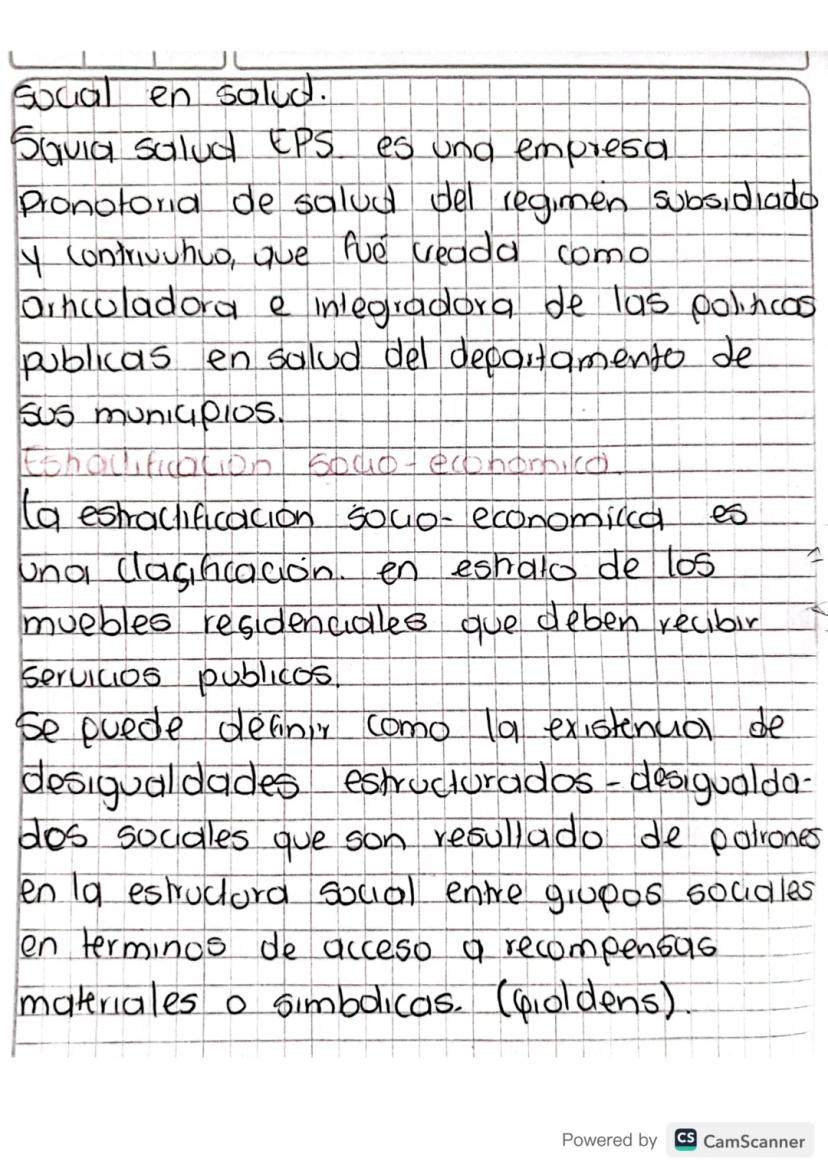 social en salud.
Savia salud EPS es una empresa
Pronotoria de salud del regimen subsidiado
y contrivutivo, que fué creada como
articuladora e integradora de las politicas
publicas en salud del departamento de
sus municipios.
Estratificacion socio-economica.
la estratificación socio-economicca es
una clasificación. en estrato de los
muebles residenciales que deben recibir
servicios publicos.
se puede definir como la existencia de
desigualdades estructurados - desigualda-
dos sociales que son resultado de patrones
en la estructura social entre grupos sociales
en terminos de acceso a recompensas
materiales o simbolicas. (Gioldens).
Powered by CS CamScanner